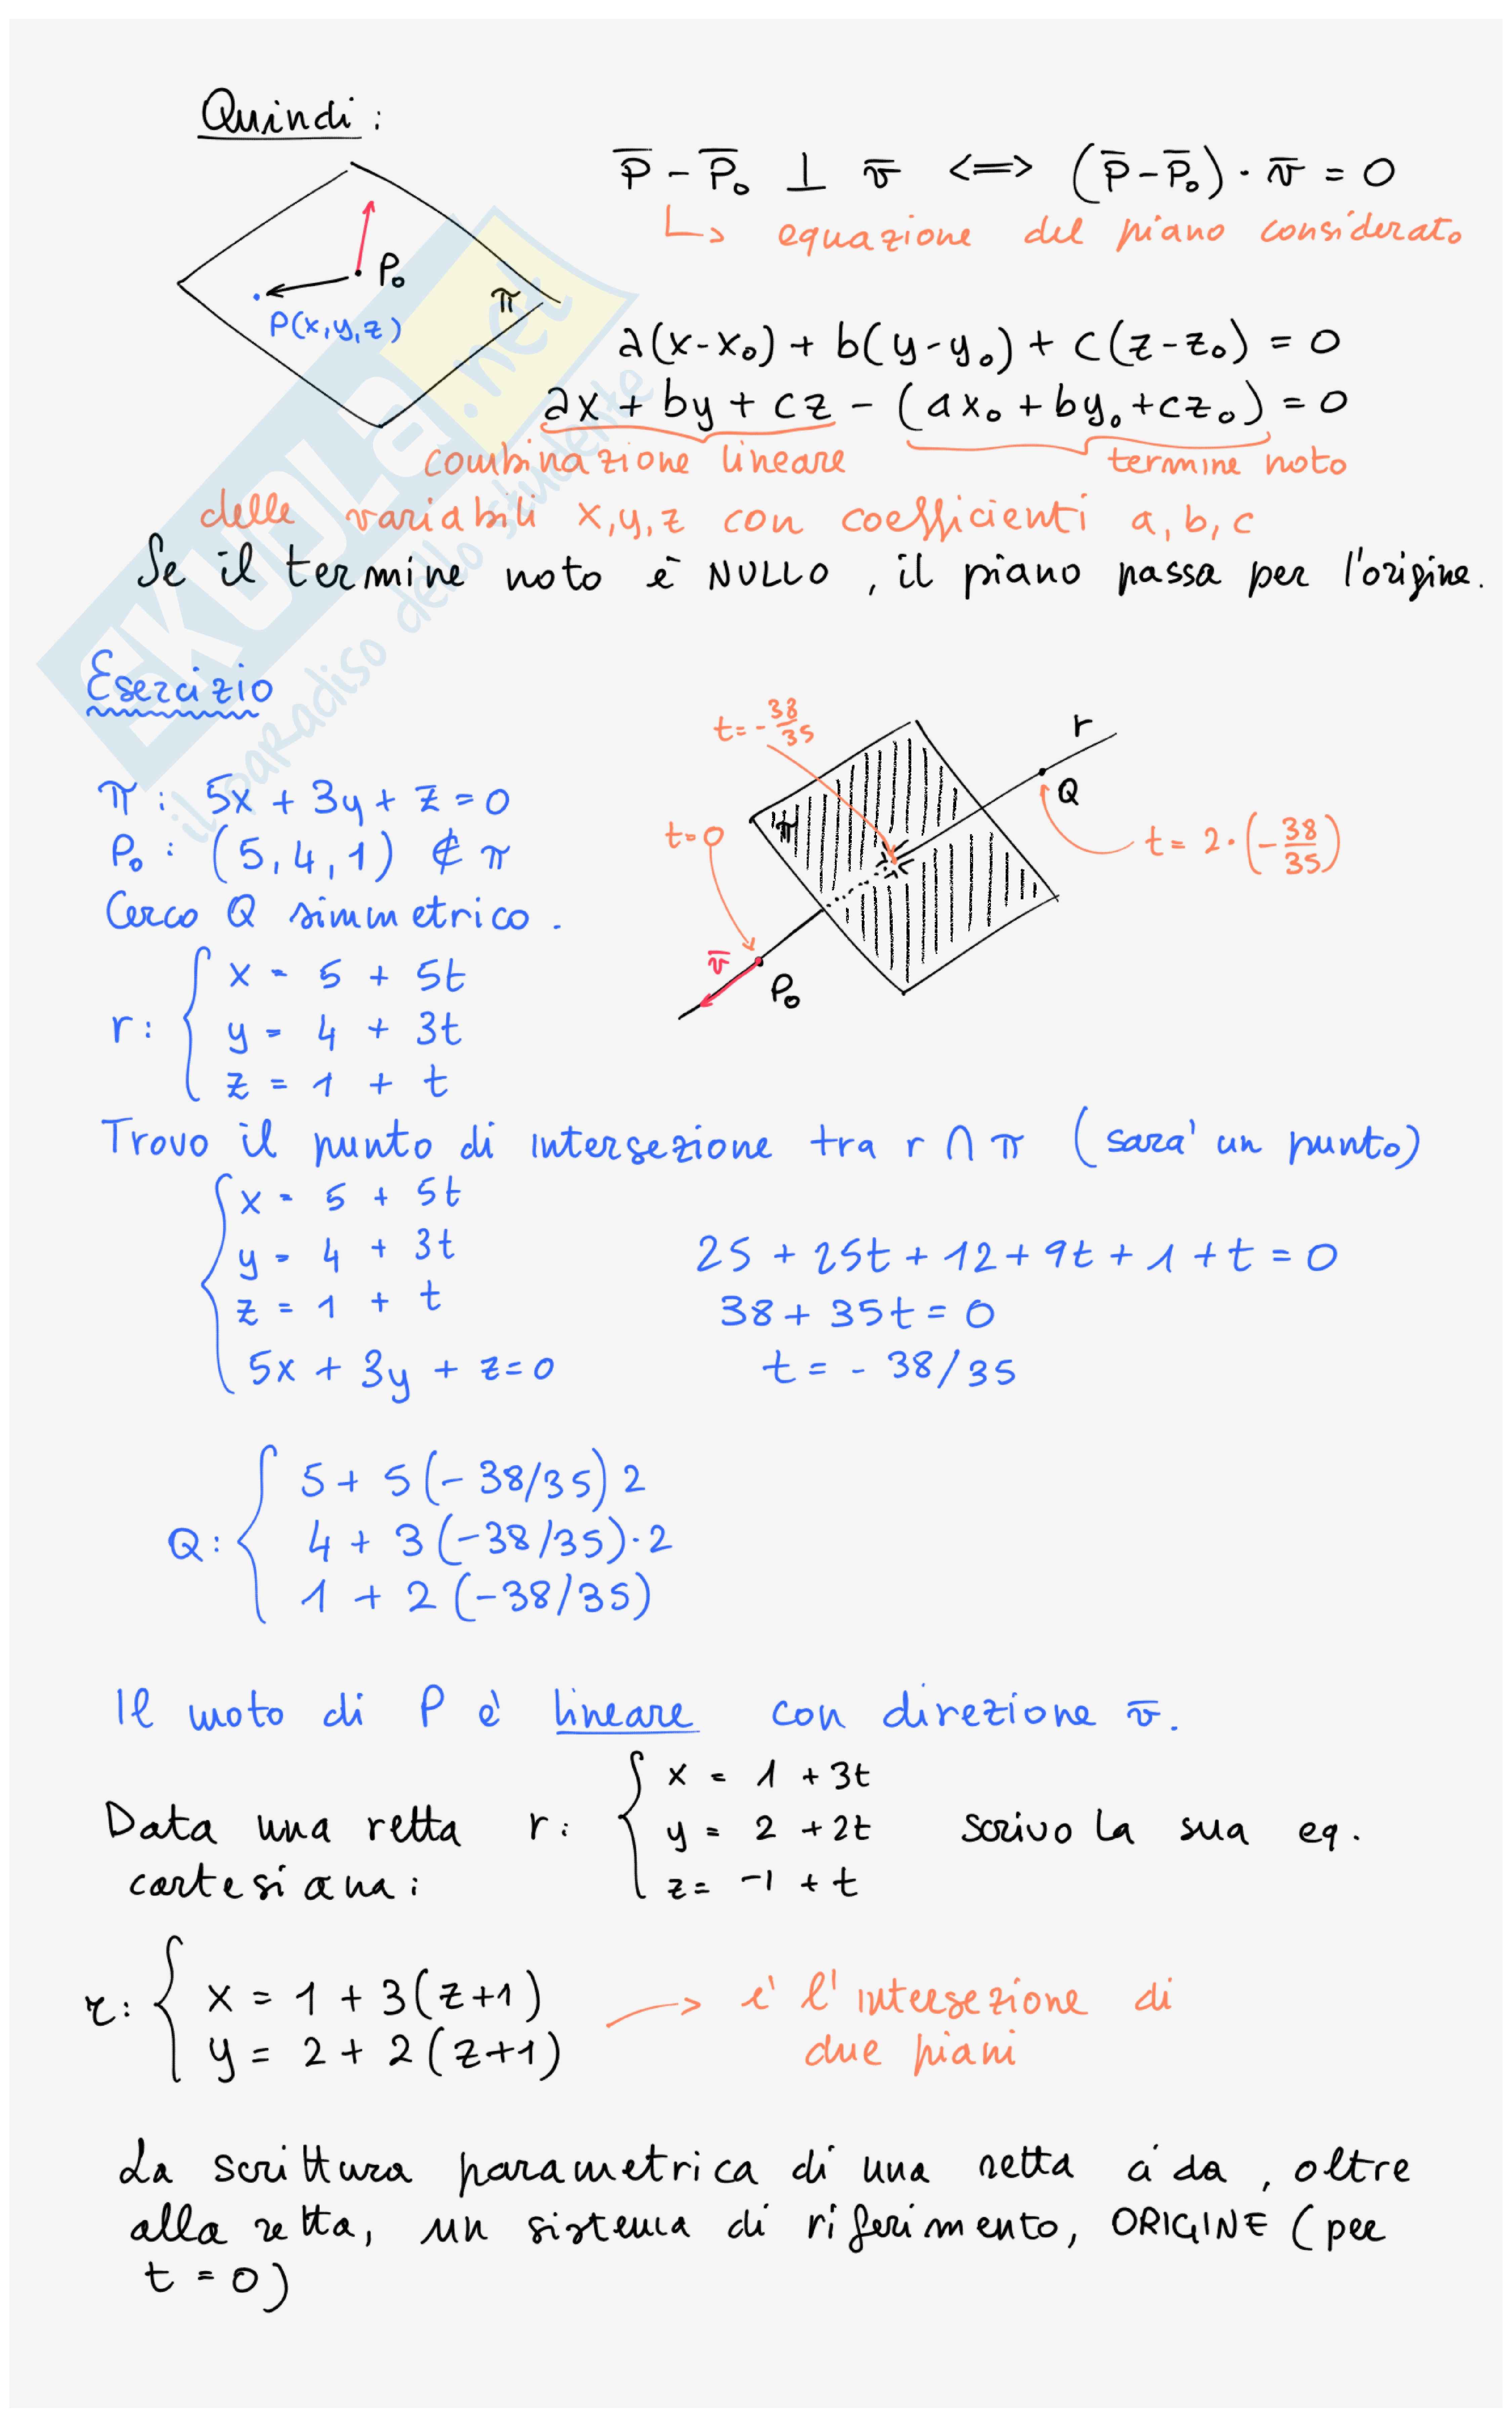 Quindi:
P̄ - P̄₀ ⊥ v̄ <=> (P̄-P̄₀) · v̄ = 0
↳ equazione del piano considerato
P₀
π
P(x,y,z)
a(x-x₀) + b(y-y₀) + c(z-z₀) = 0
ax + by + cz - (ax₀ + by₀ + cz₀) = 0
combinazione lineare
termine noto
delle variabili x,y,z con coefficienti a, b, c
Se il termine noto è NULLO, il piano passa per l'origine.
SKUOLA.net
il paradiso dello studente
Esercizio
π: 5x + 3y + z = 0
P₀: (5, 4, 1) ∉ π
Cerco Q simmetrico.
r: { x = 5 + 5t
y = 4 + 3t
z = 1 + t
t = -38/35
r
Q
π
t=0
t = 2·(-38/35)
v̄
P₀
Trovo il punto di intersezione tra r ∩ π (sara' un punto)
{ x = 5 + 5t
y = 4 + 3t
z = 1 + t
5x + 3y + z = 0
25 + 25t + 12 + 9t + 1 + t = 0
38 + 35t = 0
t = - 38/35
Q: { 5 + 5(-38/35) 2
4 + 3(-38/35)·2
1 + 2(-38/35)
Il moto di P è lineare con direzione v̄.
Data una retta r: { x = 1 + 3t
y = 2 + 2t
z = -1 + t
scrivo la sua eq.
cartesiana:
r: { x = 1 + 3(z+1)
y = 2 + 2(z+1)
→ e' l'intersezione di
due piani
La scrittura parametrica di una retta ci da, oltre
alla retta, un sistema di riferimento, ORIGINE (per
t = 0)